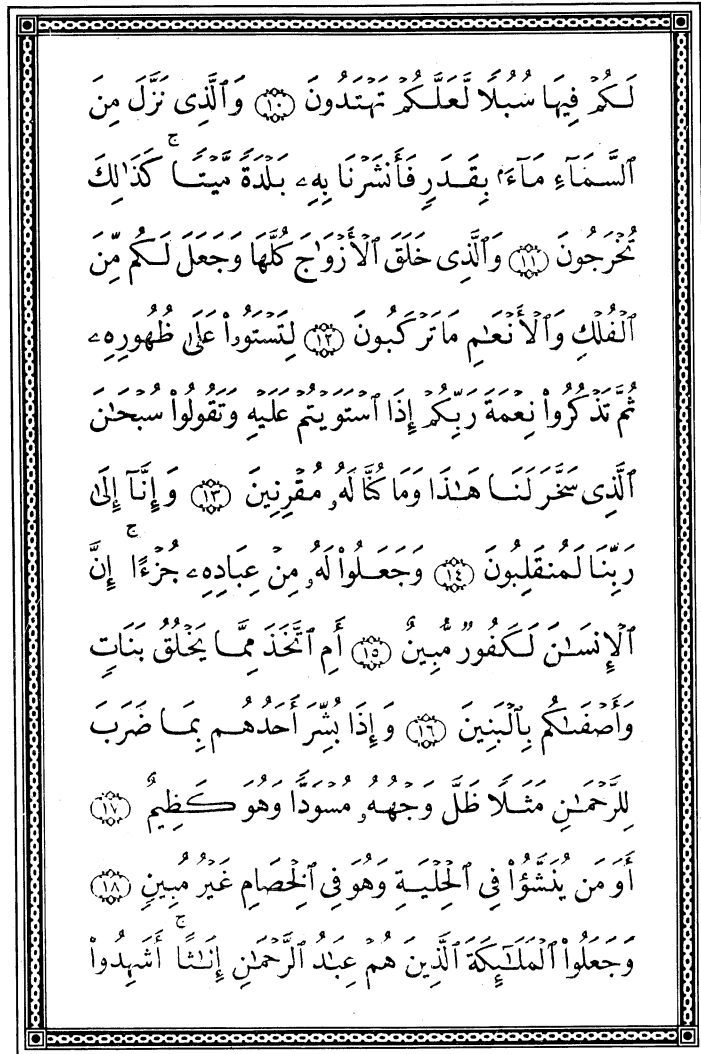 لَكُمۡ فِيهَا سُبُلًا لَّعَلَّكُمۡ تَهۡتَدُونَ ١٠ وَٱلَّذِى نَزَّلَ مِنَ
ٱلسَّمَآءِ مَآءَۢ بِقَدَرٍ فَأَنشَرۡنَا بِهِۦ بَلۡدَةً مَّيۡتًاۚ كَذَٰلِكَ
تُخۡرَجُونَ ١١ وَٱلَّذِى خَلَقَ ٱلۡأَزۡوَٰجَ كُلَّهَا وَجَعَلَ لَكُم مِّنَ
ٱلۡفُلۡكِ وَٱلۡأَنۡعَٰمِ مَا تَرۡكَبُونَ ١٢ لِتَسۡتَوُۥاْ عَلَىٰ ظُهُورِهِۦ
ثُمَّ تَذۡكُرُواْ نِعۡمَةَ رَبِّكُمۡ إِذَا ٱسۡتَوَيۡتُمۡ عَلَيۡهِ وَتَقُولُواْ سُبۡحَٰنَ
ٱلَّذِى سَخَّرَ لَنَا هَٰذَا وَمَا كُنَّا لَهُۥ مُقۡرِنِينَ ١٣ وَإِنَّآ إِلَىٰ
رَبِّنَا لَمُنقَلِبُونَ ١٤ وَجَعَلُواْ لَهُۥ مِنۡ عِبَادِهِۦ جُزۡءًاۚ إِنَّ
ٱلۡإِنسَٰنَ لَكَفُورٌ مُّبِينٌ ١٥ أَمِ ٱتَّخَذَ مِمَّا يَخۡلُقُ بَنَاتٍ
وَأَصۡفَىٰكُم بِٱلۡبَنِينَ ١٦ وَإِذَا بُشِّرَ أَحَدُهُم بِمَا ضَرَبَ
لِلرَّحۡمَٰنِ مَثَلًا ظَلَّ وَجۡهُهُۥ مُسۡوَدًّا وَهُوَ كَظِيمٌ ١٧
أَوَمَن يُنَشَّؤُاْ فِى ٱلۡحِلۡيَةِ وَهُوَ فِى ٱلۡخِصَامِ غَيۡرُ مُبِينٍ ١٨
وَجَعَلُواْ ٱلۡمَلَٰٓئِكَةَ ٱلَّذِينَ هُمۡ عِبَٰدُ ٱلرَّحۡمَٰنِ إِنَٰثًاۚ أَشَهِدُواْ